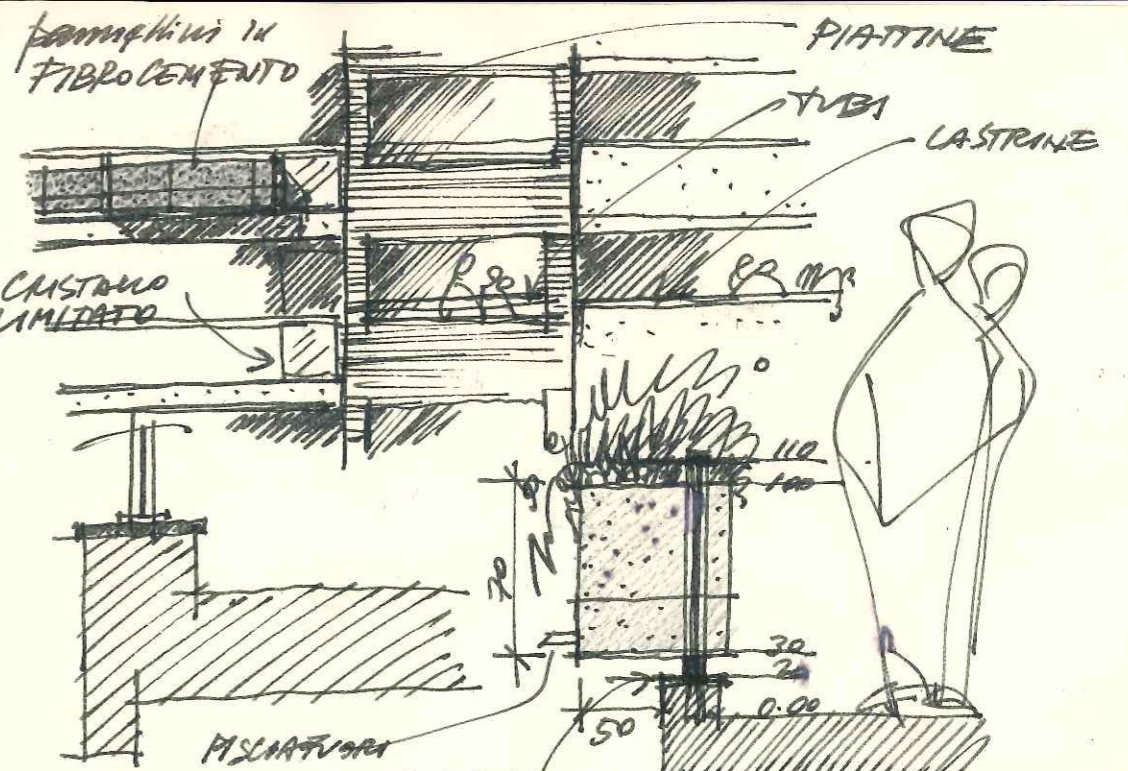 pannellini in
FIBROCEMENTO
PIATTINE
TUBI
LASTRINE
CRISTALLO
LIMITATO
110
100
70
30
20
0.00
50
PISCIAFUORI